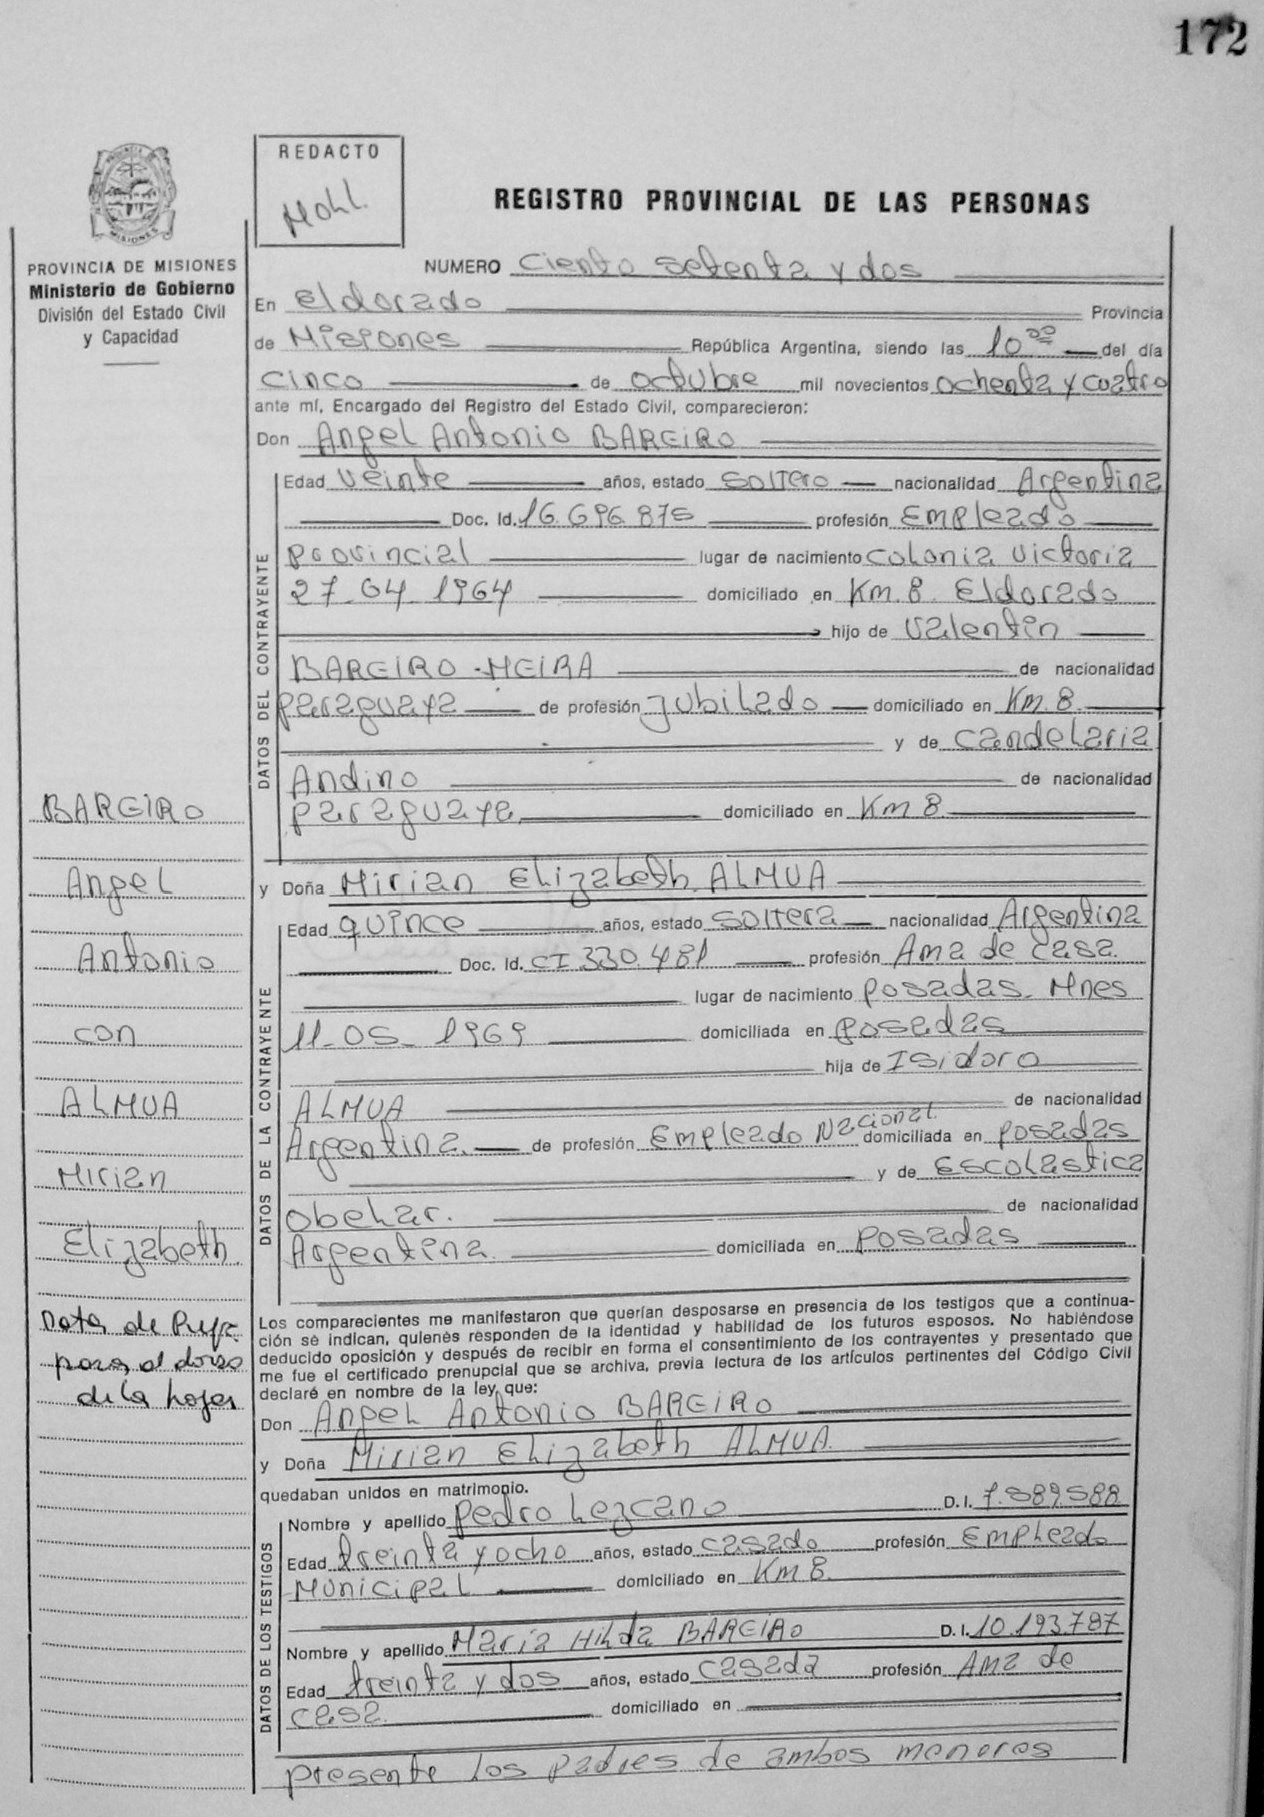 172
REDACTO
Mohl.
REGISTRO PROVINCIAL DE LAS PERSONAS
PROVINCIA DE MISIONES
Ministerio de Gobierno
División del Estado Civil
y Capacidad
NUMERO Ciento setenta y dos
En Eldorado Provincia
de Misiones República Argentina, siendo las 10 00 del día
cinco de octubre mil novecientos ochenta y cuatro
ante mí, Encargado del Registro del Estado Civil, comparecieron:
Don Angel Antonio BAREIRO
DATOS DEL CONTRAYENTE
Edad veinte años, estado soltero nacionalidad Argentina
Doc. Id. 16.696.875 profesión Empleado
provincial lugar de nacimiento Colonia Victoria
27-04-1964 domiciliado en Km. 8. Eldorado
hijo de Valentin
BAREIRO-MEIRA de nacionalidad
paraguaya de profesión Jubilado domiciliado en Km. 8.
y de Candelaria
Andino de nacionalidad
paraguaya domiciliado en Km 8
BAREIRO
Angel
Antonio
con
ALMUA
Mirian
Elizabeth
y Doña Mirian Elizabeth ALMUA
DATOS DE LA CONTRAYENTE
Edad quince años, estado soltera nacionalidad Argentina
Doc. Id. CI 330.481 profesión Ama de casa.
lugar de nacimiento posadas. Mnes
11-05-1969 domiciliada en posadas
hija de Isidoro
ALMUA de nacionalidad
Argentina. de profesión Empleado Nacional. domiciliada en posadas
y de Escolastica
Obelar. de nacionalidad
Argentina. domiciliada en posadas
de la hojas
Los comparecientes me manifestaron que querían desposarse en presencia de los testigos que a continua-
ción se indican, quienes responden de la identidad y habilidad de los futuros esposos. No habiéndose
deducido oposición y después de recibir en forma el consentimiento de los contrayentes y presentado que
me fue el certificado prenupcial que se archiva, previa lectura de los artículos pertinentes del Código Civil
declaré en nombre de la ley, que:
Don Angel Antonio BAREIRO
y Doña Mirian Elizabeth ALMUA.
quedaban unidos en matrimonio.
DATOS DE LOS TESTIGOS
Nombre y apellido pedro Lezcano D.I. 7.589.588
Edad treinta y ocho años, estado casado profesión Empleado
Municipal domiciliado en Km 8.
Nombre y apellido Maria Hilda BAREIRO D.I. 10.193.787
Edad treinta y dos años, estado casada profesión Ama de
casa. domiciliado en
presente los padres de ambos menores